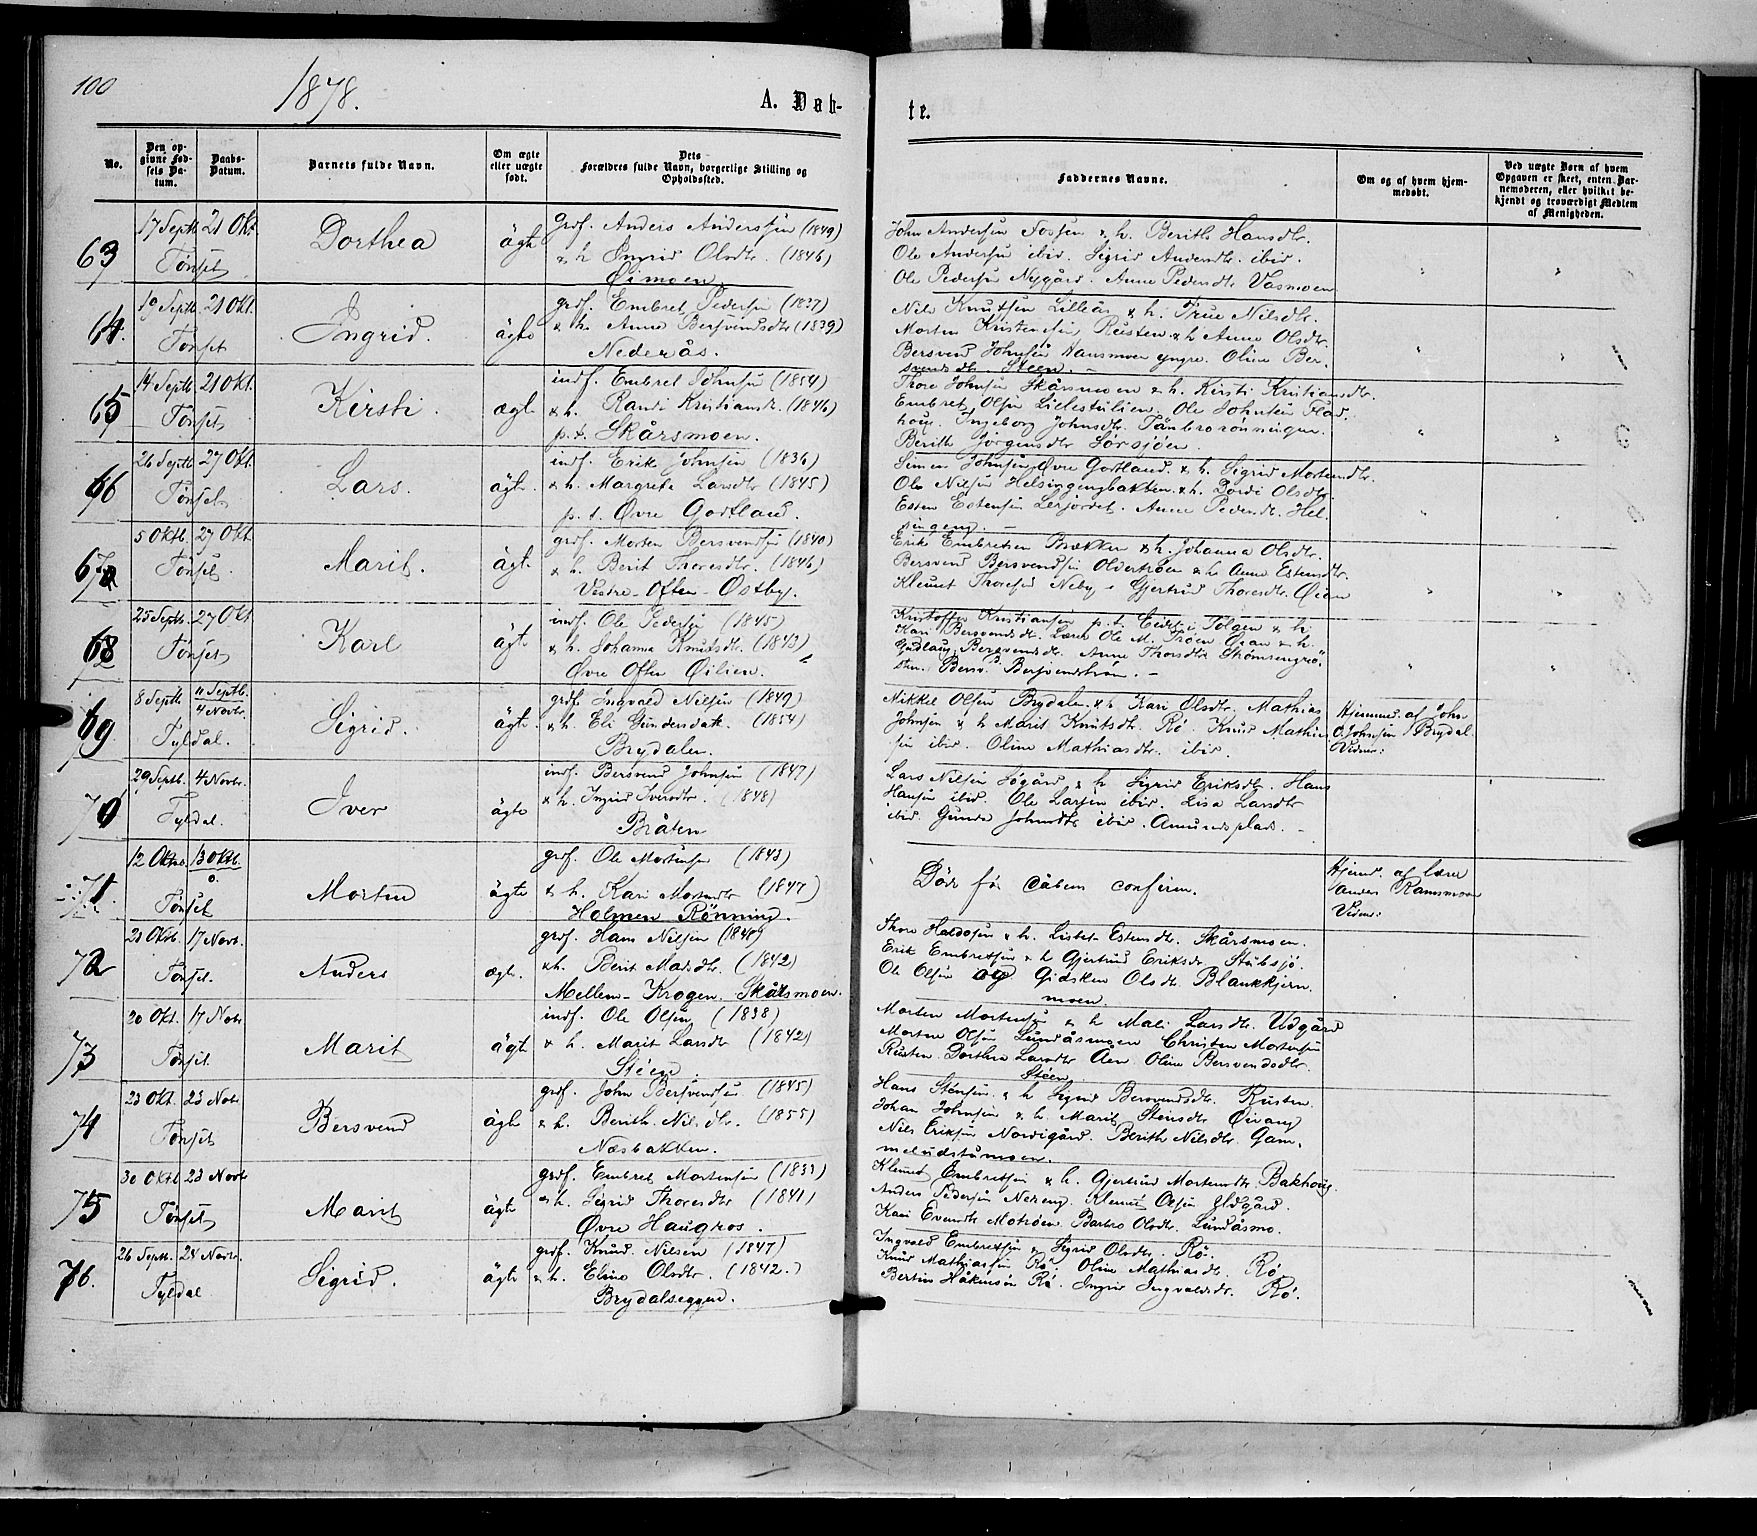 100
1878.
A. Døb-
te.
No.
Den opgivne Fødsels Datum.
Daabs-Datum.
Barnets fulde Navn.
Om ægte eller uægte født.
Dets Forældres fulde Navn, borgerlige Stilling og Opholdssted.
Faddernes Navne.
Om og af hvem hjemmedøbt.
Ved uægte Børn af hvem Opgaven er skeet, enten Barnemoderen, eller hvilket bekjendt og troværdigt Medlem af Menigheden.
63
17 Septb 21 Okt.
Tønset
Dorthea
ägte
grdf. Anders Anderssen (1849)
& h Ingrid Olsdtr. (1846)
Øimoen
John Andersen Fossen & h. Berith Hansdtr.
Ole Andersen ibid. Sigrid Andersdtr. ibid.
Ole Pedersen Nygård. Anne Pedersdtr Vasmoen
64.
19 Septb 21 Okt.
Tønset
Ingrid.
ägte
grdf. Embret Pedersen (1837)
& h. Anne Bersvendsdtr (1839)
Nederås.
Nils Knutsen Lilleås & h. True Nilsdtr.
Morten Kristensen Rusten & h Anne Olsdtr.
Bersvend Johnsen yngre. Oline Ber-
svendsdtr. Steen. -
65
14 Septb 21 Okt.
Tønset
Kirsti.
ægt.
indf. Embret Johnsen (1854)
& h. Randi Kristiansdtr. (1846)
p. t. Skårsmoen.
Thore Johnsen Skårsmoen & h. Kirsti Kristiansdtr.
Embret Olsen Lillestulien. Ole Johnsen Flad-
houg. Ingeborg Johnsdtr. Tånbrorønningen.
Berith Jørgensdtr Sørsjøen
66
26 Septb 27 Okt.
Tønset
Lars.
ägte.
indf. Erik Johnsen (1836)
& h. Margrete Larsdtr (1845)
p. t. Øvre Godtland.
Simen Johnsen Øvre Godtland. & h. Sigrid Mortensdtr.
Ole Nilsen Helsingengbakken & h. Dordi Olsdtr.
Esten Estensen Lerjordet. Anne Pedersdtr. Hel-
singeng. -
67
5 Oktb. 27 Okt
Tønset.
Marit.
ägt.
grdf. Morten Bersvendsen (1840)
& h. Berit Thoresdtr. (1846)
Vestre-Often-Østby.
Erik Embretsen Brækken & h. Johanna Olsdtr.
Bersvend Bersvendsen Oldertrøen & h Anne Estensdtr.
Klemet Thoresen Neby - Gjertrud Thoresdtr. Øian
68
25 Septb. 27 Okt
Tønset
Karl
ägt
indf. Ole Pedersen (1845)
& h. Johanna Knutsdtr. (1843)
Øvre Often Øilien.
Kristoffer Kristiansen p. t. Eidet i Tolgen & h.
Kari Bersvendsdtr. Lærer Ole M. Trøen Øian & h.
Gudlaug Bersvendsdtr. Anne Thorsdtr
69
8 Septb 11 Septb.
4 Novbr.
Tyldal.
Sigrid.
ägt
grdf. Ingvald Nilsen (1849)
& h. Eli Gundersdatt. (1854)
Brydalen.
Mikkel Olsen Brydalen & h. Kari Olsdtr. Mathias
Johnsen & h. Marit Knutsdtr. Rø. Knud Mathia-
sen ibid. Oline Mathiasdtr. ibid.
Hjemmed. af John
O. Johnsen Brydal.
Vidner:
70
29 Septb. 4 Novbr.
Tyldal.
Iver
ägte
indf. Bersvend Johnsen (1847)
& h. Ingrid Iversdtr. (1848)
Bråten
Lars Nilsen Søgård & h Sigrid Eriksdtr. Hans
Hansen ibid. Ole Larsen ibid. Lisa Larsdtr
ibid. Gunda Johnsdtr ibid. Amundsplads. -
71.
12 Oktbr. 13 Oktb.
0.
Tønset
Morten
ägte
grdf. Ole Mortensen (1843)
& h. Kari Mortensdtr (1847)
Holmen Rønning.
Døde før Dåbens confirm.
Hjemd. af lærer
Anders Ramsmoen
Vidner:
72
23 Oktb. 17 Novb.
Tønset.
Anders
ægt.
grdf. Hans Nilsen (1840)
& h. Berit Madsdtr. (1842)
Mellem-Krogen. Skårsmoen.
Thore Haldosen & h. Lisbet Estensdtr. Skårsmoen.
Erik Embretsen & h Gjertrud Eriksdtr. Stubsjø.
Ole Olsen og Gidsken Olsdtr. Blankkjern-
moen.
73
20 Okt. 17 Nobr
Tønset.
Marit
ägte
indf. Ole Olsen (1838)
& h. Marit Larsdtr (1842)
Stéen
Morten Mortensen & h Mali Larsdtr. Udgård
Morten Olsen Lundåsmoen Christen Mortensen
Rusten. Dorthea Larsdtr Åen. Oline Bersvendsdtr.
Stéen
74
23 Okt. 23 Nobr
Tønset
Bersvend
ägte
grdf. John Bersvendsen (1845)
& h. Berith. Nilsdtr. (1855)
Næsbakken.
Hans Stensen & h Sigrid Bersvendsdtr. Rusten.
Johan Johnsen & h. Marit Stensdtr Øivang
Nils Eriksen Nordigård. Berith Nilsdtr. Gam-
meludstumoen.
75
30 Oktbl 23 Novbr
Tønset
Marit
ägte
grdf. Embret Mortensen (1833)
& h. Sigrid Thoresdtr (1841)
Øvre Haugros.
Klemet Embretsen & h. Gjertrud Mortensdtr. Bakhoug.
Anders Pedersen Nereng. Klemet Olsen Udgård.
Kari Evensdtr Motrøen Barbro Olsdtr. Lundåsmo.
76.
26 Septb. 24 Novbr.
Tyldal
Sigrid.
ägte
grdf. Knud. Nilsen (1847)
& h. Eline Olsdtr. (1842.)
Brydalseggen.
Ingvald Embretsen & Sigrid Olsdtr. Rø.
Knud Mathiassen Rø. Oline Mathiasdtr. Rø
Bertin Håkensøn Rø. Ingrid Ingvaldsdtr. Rø.